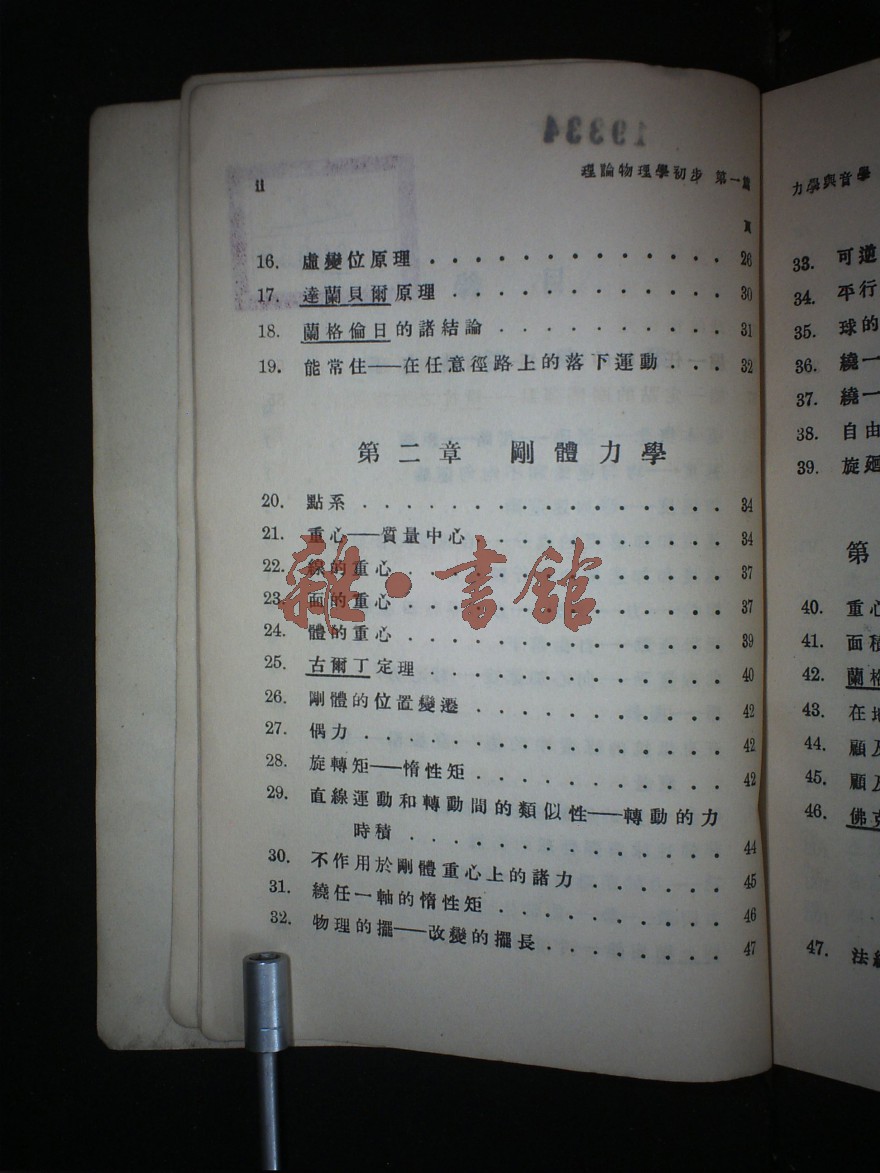 19334
ii
理論物理學初步 第一篇
頁
16. 虛變位原理 . . . . . . . . . . . . . . 26
17. 達蘭貝爾原理 . . . . . . . . . . . . . 30
18. 蘭格倫日的諸結論 . . . . . . . . . . . 31
19. 能常住——在任意徑路上的落下運動 . . . 32
第二章 剛體力學
20. 點系 . . . . . . . . . . . . . . . . . 34
21. 重心——質量中心 . . . . . . . . . . . . 34
22. 線的重心 . . . . . . . . . . . . . . . 37
23. 面的重心 . . . . . . . . . . . . . . . 37
24. 體的重心 . . . . . . . . . . . . . . . 39
25. 古爾丁定理 . . . . . . . . . . . . . . 40
26. 剛體的位置變遷 . . . . . . . . . . . . 42
27. 偶力 . . . . . . . . . . . . . . . . . 42
28. 旋轉矩——惰性矩 . . . . . . . . . . . . 42
29. 直線運動和轉動間的類似性——轉動的力
時積 . . . . . . . . . . . . . . . 44
30. 不作用於剛體重心上的諸力 . . . . . . . 45
31. 繞任一軸的惰性矩 . . . . . . . . . . . 46
32. 物理的擺——改變的擺長 . . . . . . . . . 47
雜·書館
力學與音學
33. 可逆
34. 平行
35. 球的
36. 繞一
37. 繞一
38. 自由
39. 旋廻
第
40. 重心
41. 面積
42. 蘭格
43. 在地
44. 顧及
45. 顧及
46. 佛克
47. 法線